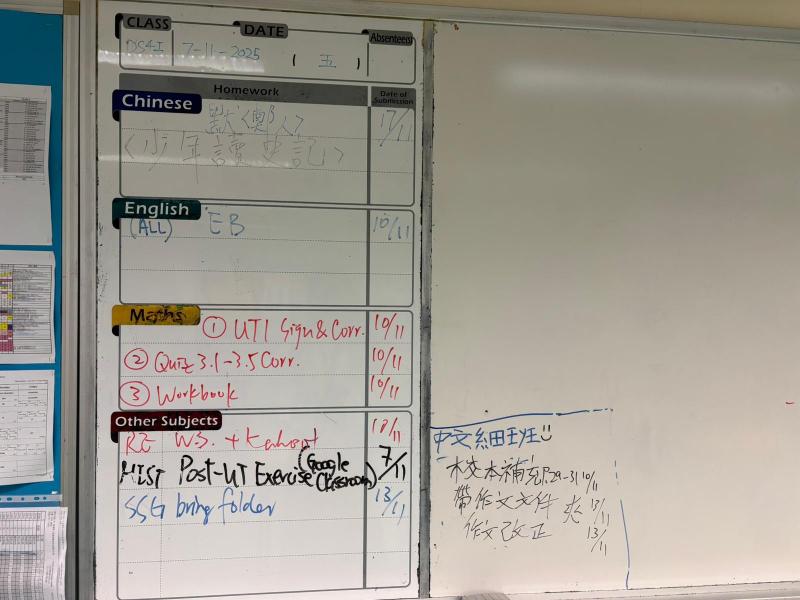 CLASS DATE Absentees
DS4I 7-11-2025 (五)
Homework Date of Submission
Chinese
默〈奧人〉 17/11
〈少年讀史記〉
English
(ALL) EB 10/11
Maths
① UT1 Sign & Corr. 10/11
② Quiz 3.1-3.5 Corr. 10/11
③ Workbook 10/11
Other Subjects
RE W.S. + Kahoot 18/11
HIST Post-UT Exercise (Google Classroom) 7/11
SSG bring folder 13/11
中文細班
校本補充 P.29-31 10/11
帶作文文件夾 13/11
作文改正 13/11